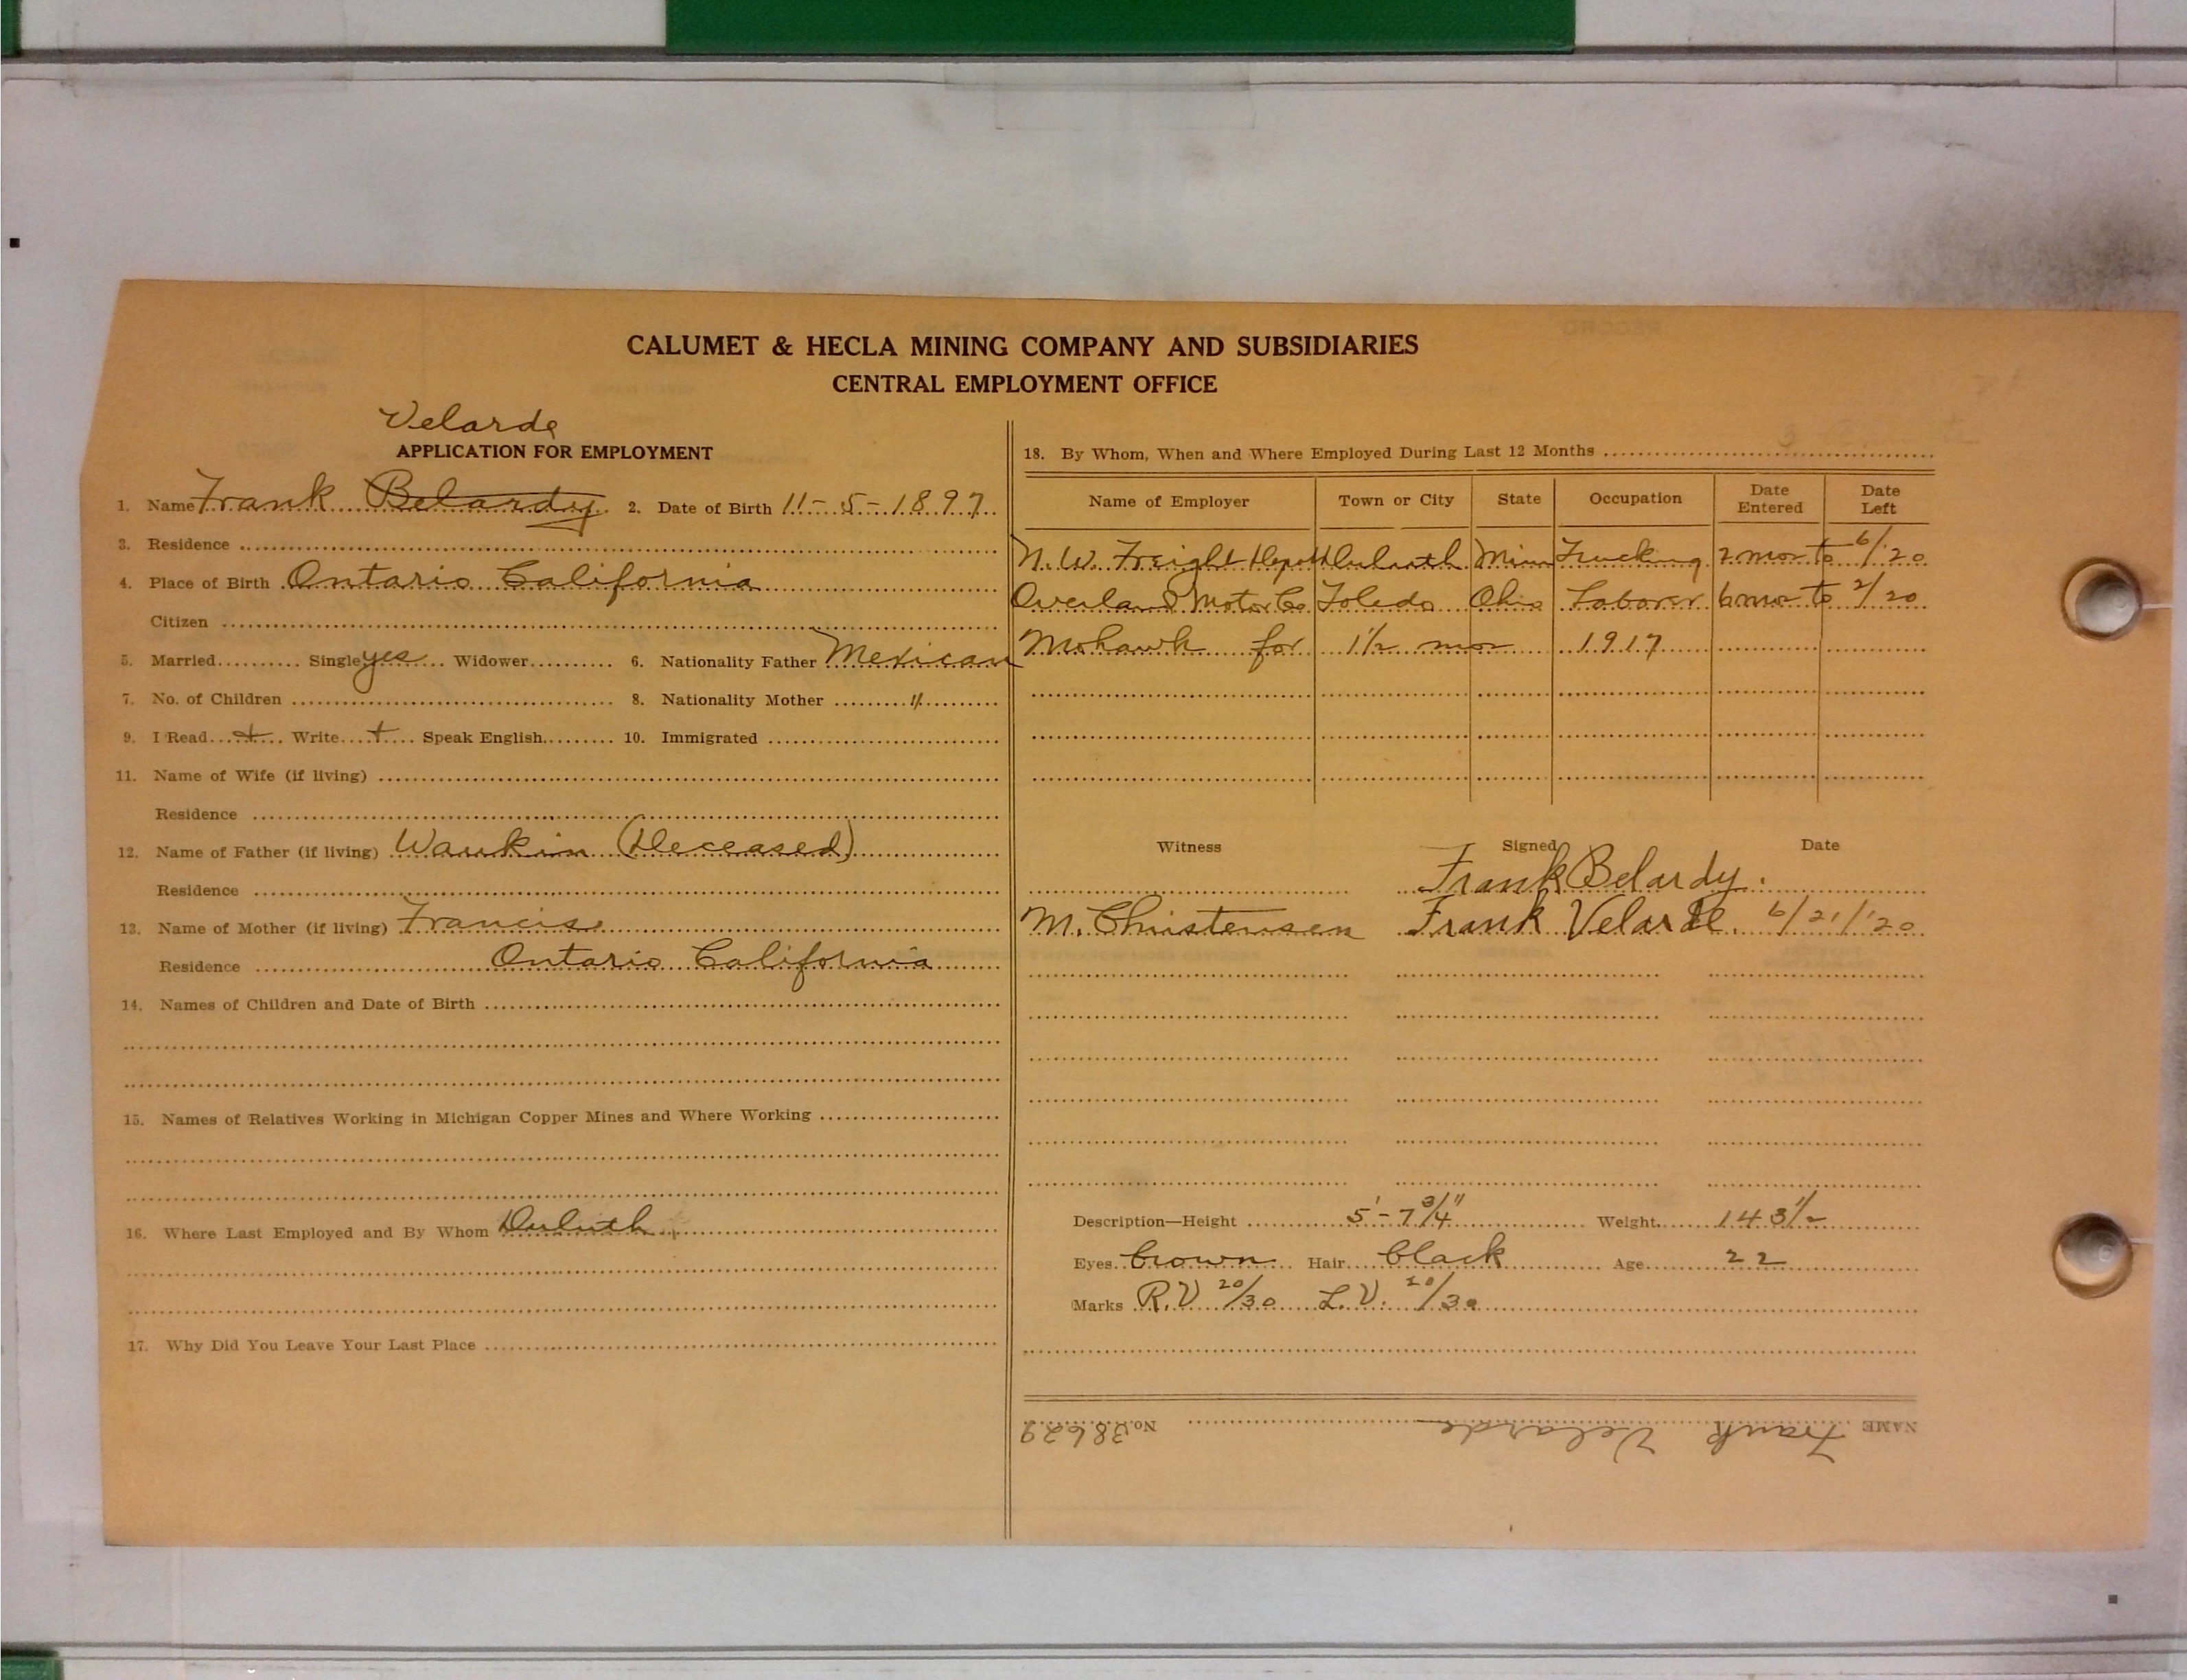 CALUMET & HECLA MINING COMPANY AND SUBSIDIARIES
CENTRAL EMPLOYMENT OFFICE
Velarde
APPLICATION FOR EMPLOYMENT
1. Name Frank Belardy 2. Date of Birth 11-5-1897
3. Residence
4. Place of Birth Ontario California
Citizen
5. Married Single yes Widower 6. Nationality Father Mexican
7. No. of Children 8. Nationality Mother "
9. I Read + Write + Speak English 10. Immigrated
11. Name of Wife (if living)
Residence
12. Name of Father (if living) Waukin (Deceased)
Residence
13. Name of Mother (if living) Francis
Residence Ontario California
14. Names of Children and Date of Birth
15. Names of Relatives Working in Michigan Copper Mines and Where Working
16. Where Last Employed and By Whom Duluth
17. Why Did You Leave Your Last Place
18. By Whom, When and Where Employed During Last 12 Months
Name of Employer Town or City State Occupation Date Entered Date Left
N.W. Freight Depot Duluth Minn Trucking 2 mos to 6/20
Overland Motor Co Toledo Ohio Laborer 6 mos to 2/20
Mohawk for 1½ mos 1917
Witness Signed Date
Frank Belardy.
M. Christensen Frank Velarde. 6/21/'20
Description—Height 5'-7¾" Weight 143½
Eyes brown Hair black Age 22
Marks R.V 20/30 L.V. 20/30
NAME Frank Velarde No. 38629